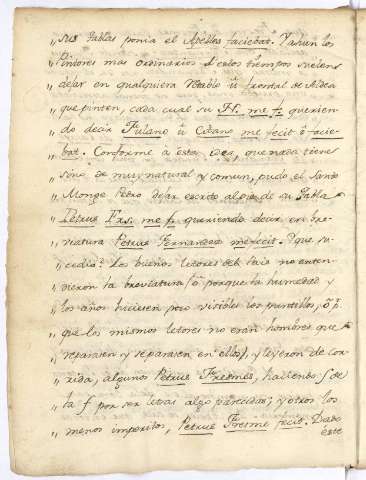 „ sus tablas ponia el Apeles faciebat. Y aun los
„ Pintores mas ordinarios de estos tiempos suelen
„ dejar en qualquiera retablo ù frontal de Aldea
„ que pinten, cada cual su N. me f. querien-
„ do decir Fulano ù Citano me fecit ò facie-
„ bat. Conforme à esta, que nada tiene
„ sino de muy natural y comun, pudo el Santo
„ Monge Pedro dejar escrito al pie de su Tabla
„ Petrus Frs. me f. queriendo decir en bre-
„ viatura Petrus Fernandez me fecit. Y que su-
„ cedio? Los buenos letores del pais no enten-
„ dieron la breviatura, (ò porque la humedad y
„ los años hiciesen poco visibles los puntillos, ò p.
„ que los mismos letores no eran hombres que
„ reparasen y separasen en ellos), y leyeron de cor-
„ rida, algunos Petrus Fresmes, haciendo s de
„ la f por ser letras algo parecidas; y otros los
„ menos imperitos, Petrus Fresme fecit. Dado
este